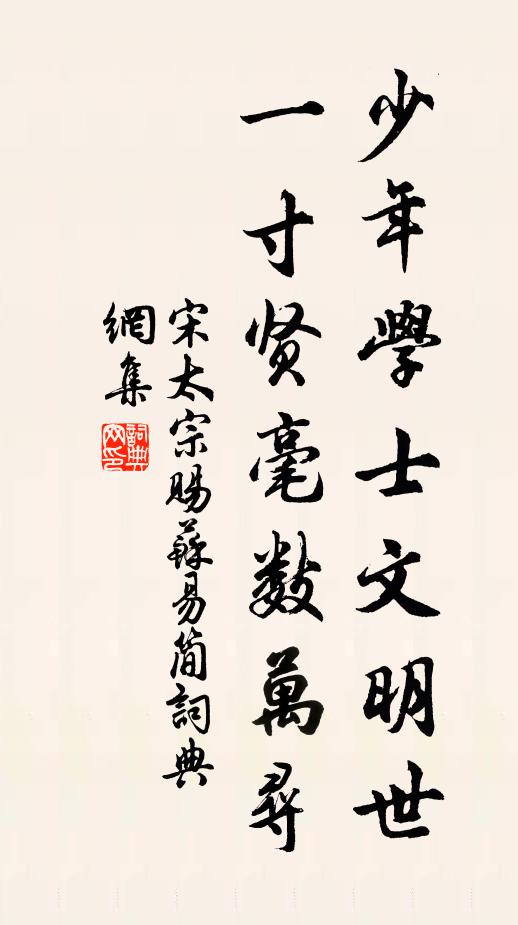 少年學士文明世
一寸贤毫数萬尋
宋太宗賜蘇易简詞典
網集
詞典
网印